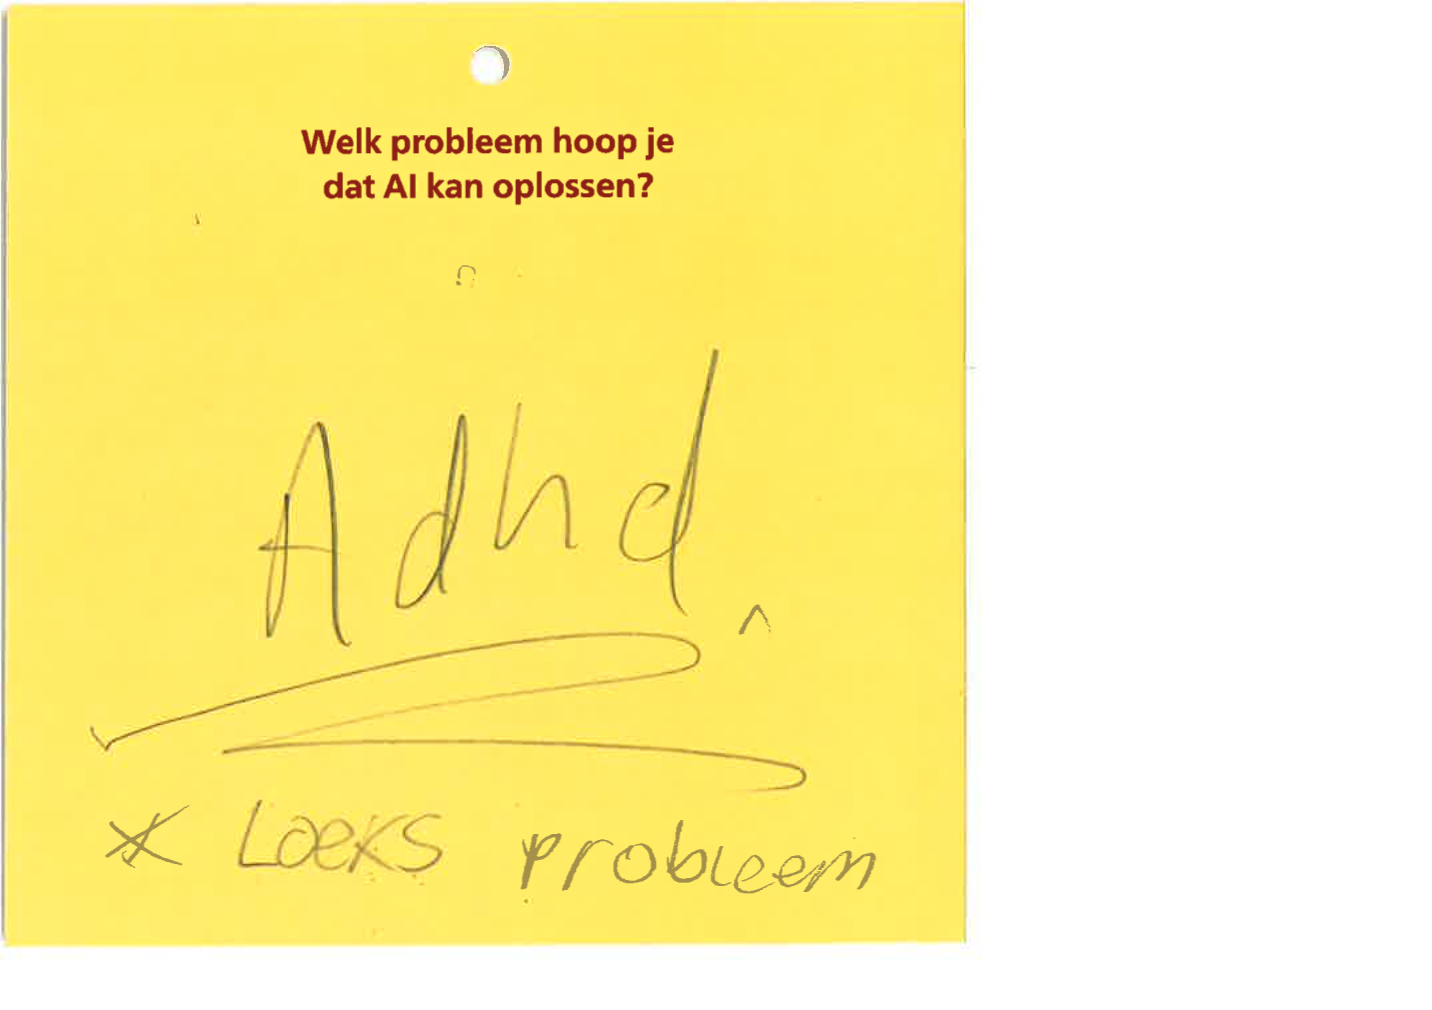 Welk probleem hoop je
dat AI kan oplossen?
Adhd
* Loeks probleem